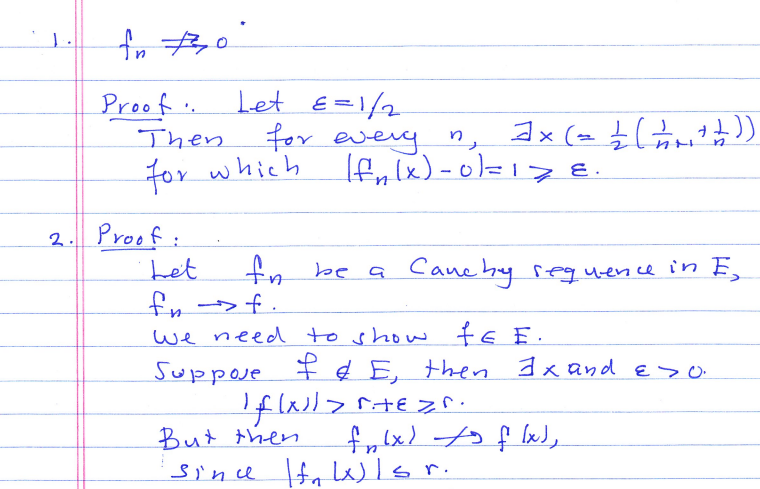 1. fₙ ⇉̸ 0
Proof: Let ε = 1/2
Then for every n, ∃x (= 1/2 (1/(n+1) + 1/n))
for which |fₙ(x) - 0| = 1 ⩾ ε.
2. Proof:
Let fₙ be a Cauchy sequence in E,
fₙ → f.
We need to show f ∈ E.
Suppose f ∉ E, then ∃x and ε > 0.
|f(x)| > r + ε ⩾ r.
But then fₙ(x) ↛ f(x),
since |fₙ(x)| ≤ r.